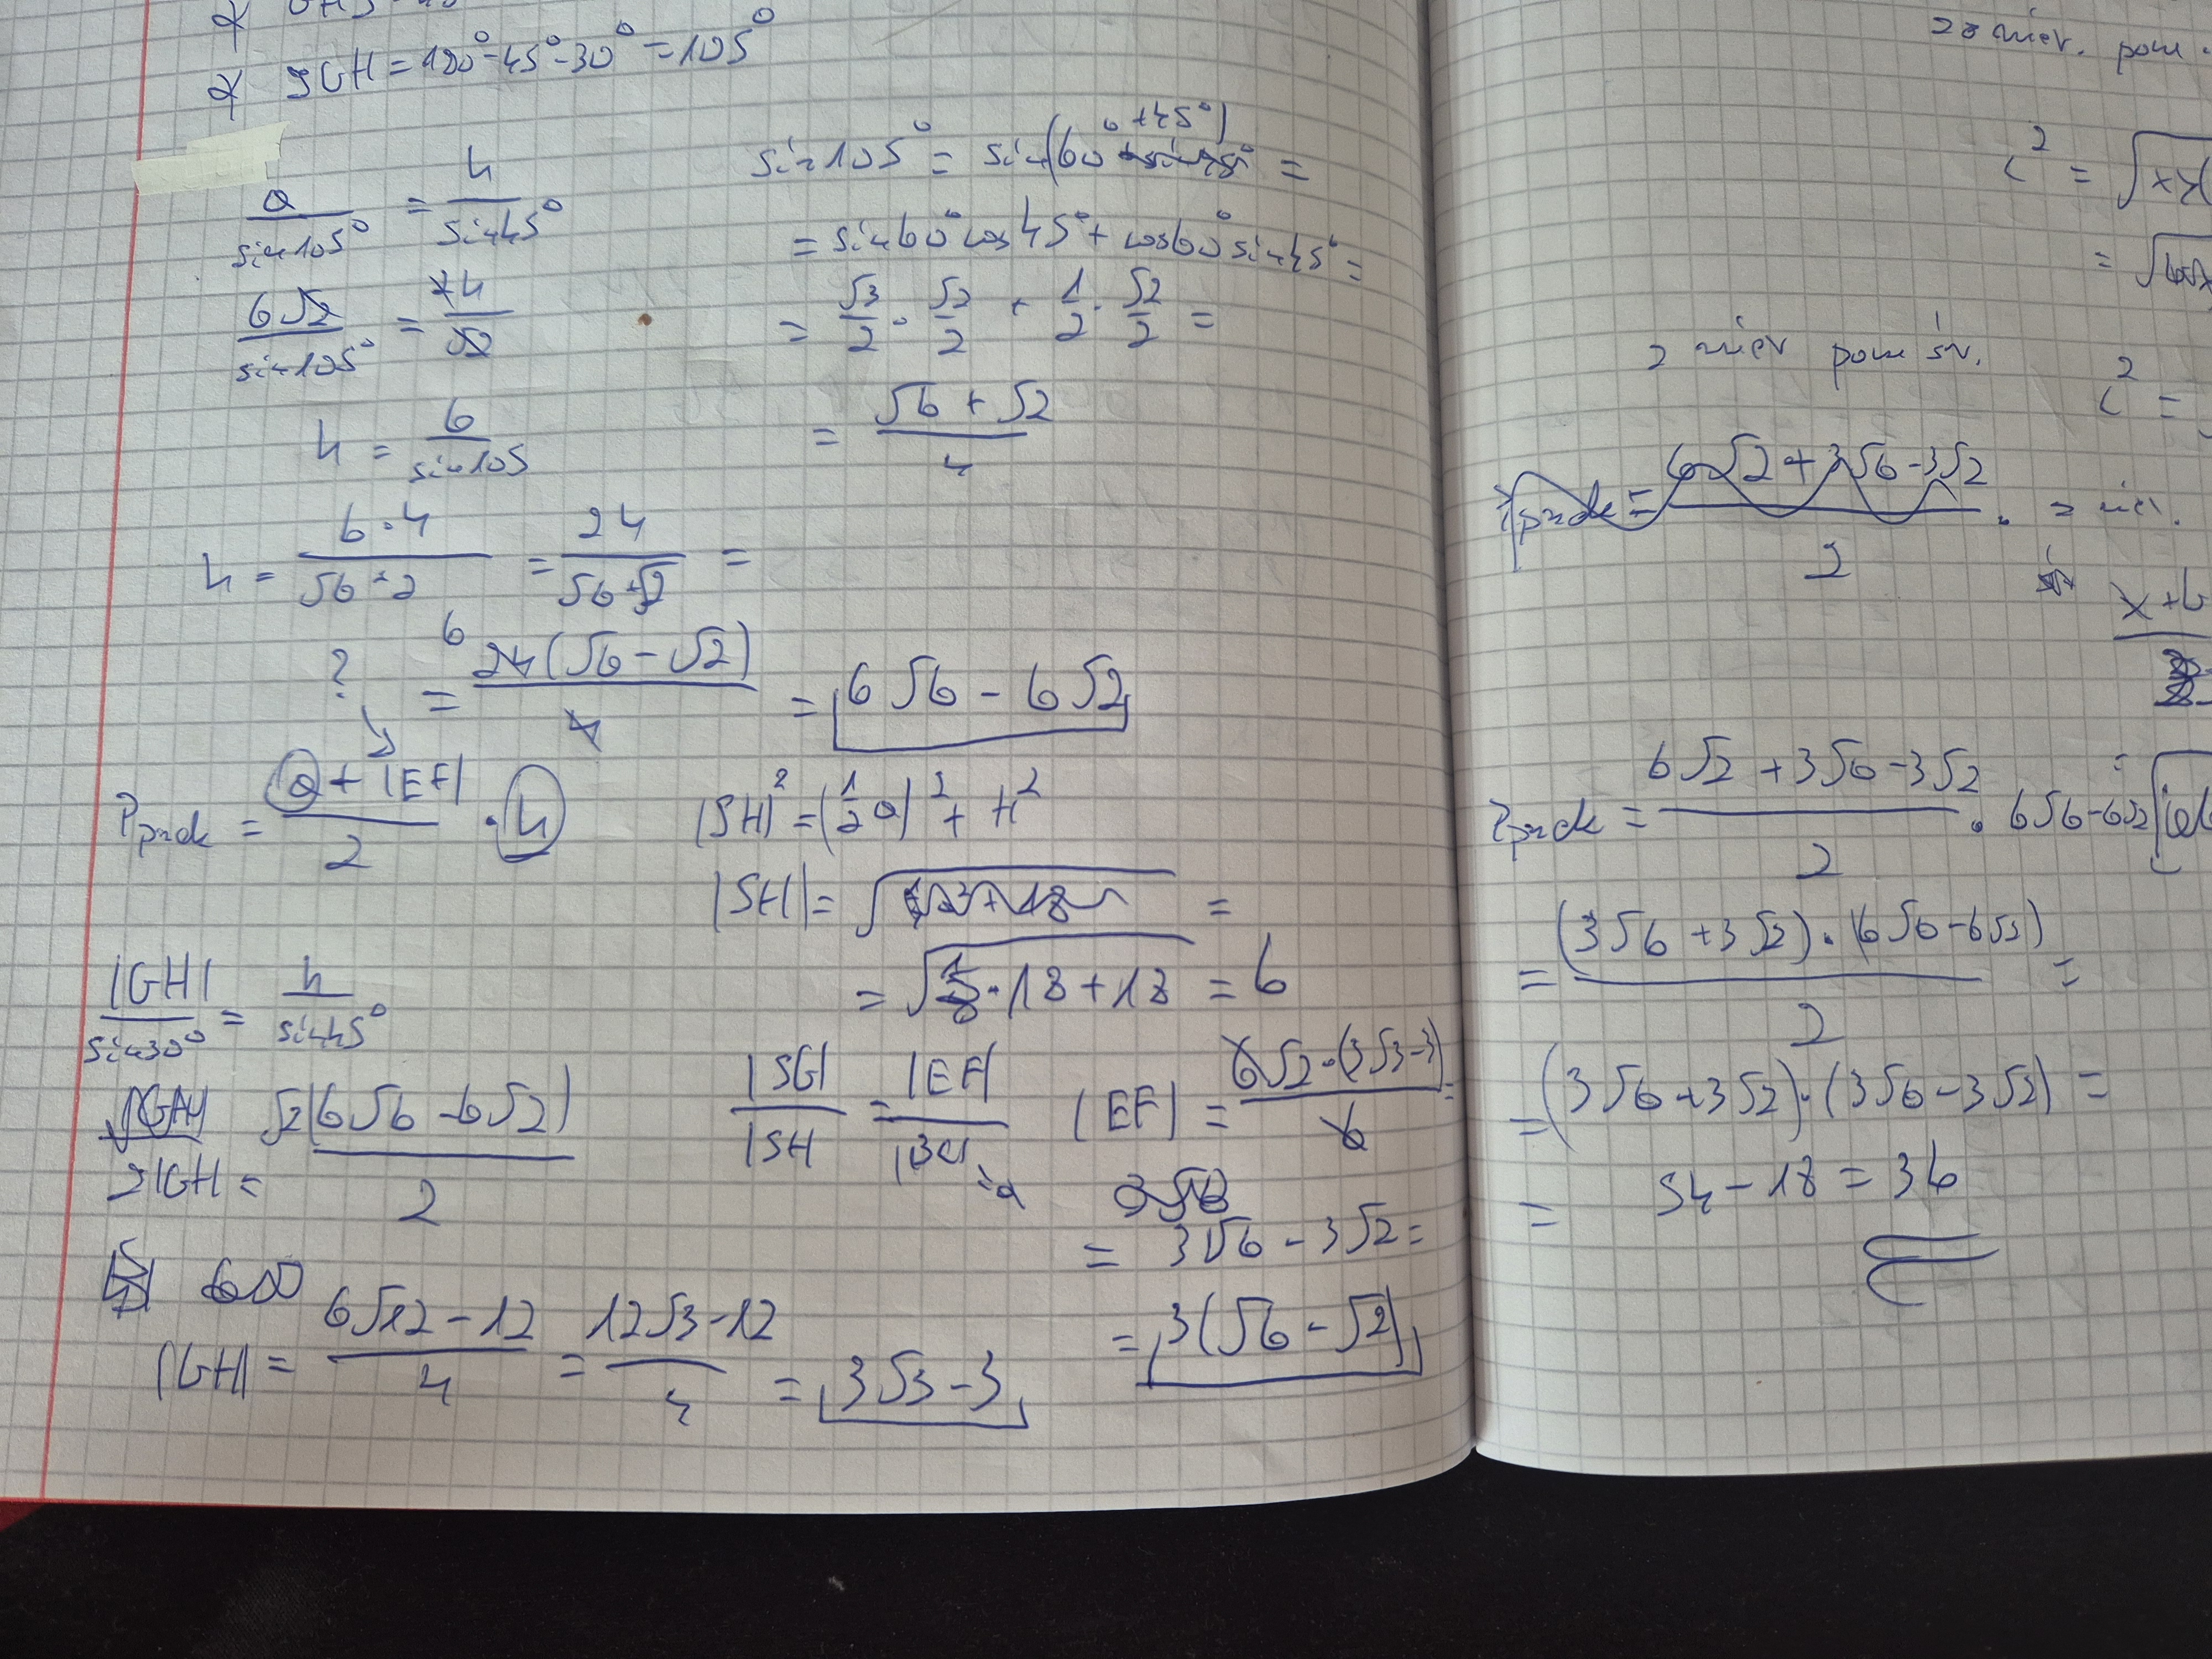 ∢ SGH = 180° - 45° - 30° = 105°
a / sin105° = h / sin45°
6√2 / sin105° = h / √2
h = 6 / sin105
h = 6·4 / √6+2 = 24 / √6+√2 =
= 24(√6 - √2) / 4 = 6√6 - 6√2
sin105° = sin(60° + 45°) =
= sin60° cos45° + cos60° sin45° =
= √3/2 · √2/2 + 1/2 · √2/2 =
= √6 + √2 / 4
?
Pprzek = a + |EF| / 2 · h
|SH|² = (1/2 a)² + H²
|SH| = =
= · 18 + 18 = 6
|GH| / sin30° = h / sin45°
2|GH| = √2(6√6 - 6√2) / 2
|GH| = 6√12 - 12 / 4 = 12√3 - 12 / 4 = 3√3 - 3
|SG| / |SH| = |EF| / |BC| = a
|EF| = 6√2 · (3√3 - 3) / 6 =
= 3√6 - 3√2 =
= 3(√6 - √2)
c² =
=
c² =
Pprzek = 6√2 + 3√6 - 3√2 / 2 ·
x + b
Pprzek = 6√2 + 3√6 - 3√2 / 2 · 6√6 - 6√2
= (3√6 + 3√2) · (6√6 - 6√2) / 2 =
= (3√6 + 3√2) · (3√6 - 3√2) =
= 54 - 18 = 36